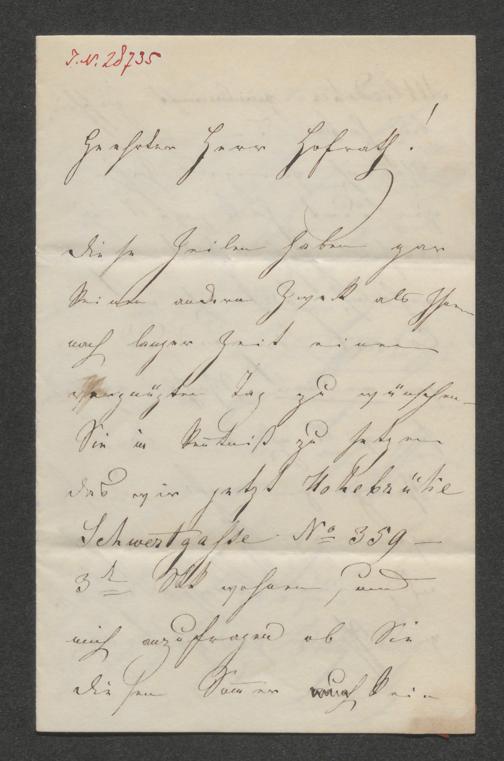 I.N. 28735
Geehrter Herr Hofrath!
Diese Zeilen haben gar
keinen andern Zweck als Ihnen
nach langer Zeit einen
vergnügten Tag zu wünschen –
Sie in Kentniß zu setzen
das wir jetzt Hohebrücke
Schwertgasse No 359 –
3t Stk wohnen, und
mich anzufragen ob Sie
diesen Somer auch kein